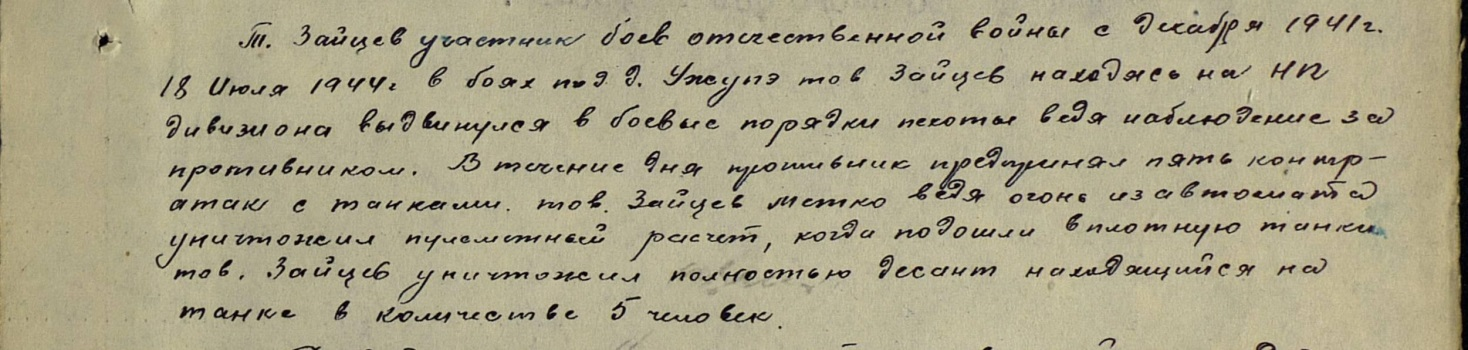 т. Зайцев участник боев отечественной войны с декабря 1941г.
18 Июля 1944г в боях под д. Ужупэ тов Зайцев находясь на НП
дивизиона выдвинулся в боевые порядки пехоты ведя наблюдение за
противником. В течение дня противник предпринял пять контр-
атак с танками. тов. Зайцев метко ведя огонь из автомата
уничтожил пулеметный расчет, когда подошли вплотную танки
тов. Зайцев уничтожил полностью десант находящийся на
танке в количестве 5 человек.